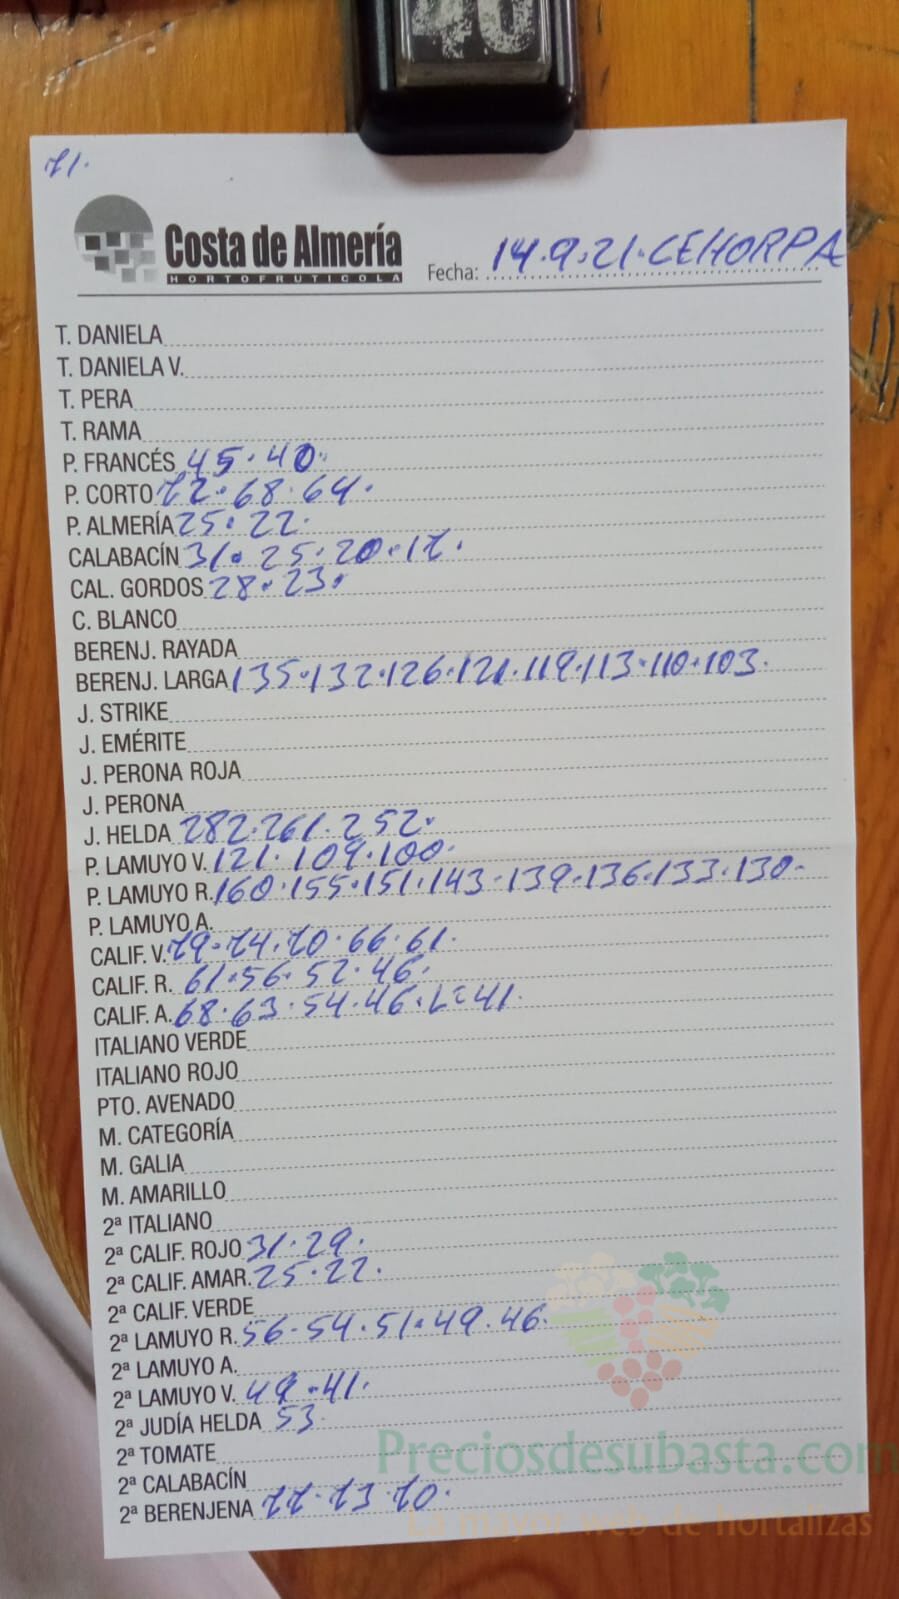 40
71.
Costa de Almería
HORTOFRUTICOLA
Fecha: 14.9.21.CEHORPA
T. DANIELA
T. DANIELA V.
T. PERA
T. RAMA
P. FRANCÉS 45.40.
P. CORTO 72.68.64.
P. ALMERÍA 25.22.
CALABACÍN 31.25.20.17.
CAL. GORDOS 28.23.
C. BLANCO
BERENJ. RAYADA
BERENJ. LARGA 135.132.126.121.119.113.110.103.
J. STRIKE
J. EMÉRITE
J. PERONA ROJA
J. PERONA
J. HELDA 282.261.252.
P. LAMUYO V. 121.109.100.
P. LAMUYO R. 160.155.151.143.139.136.133.130.
P. LAMUYO A.
CALIF. V. 79.74.70.66.61.
CALIF. R. 61.56.52.46.
CALIF. A. 68.63.54.46. 41.
ITALIANO VERDE
ITALIANO ROJO
PTO. AVENADO
M. CATEGORÍA
M. GALIA
M. AMARILLO
2ª ITALIANO
2ª CALIF. ROJO 31.29.
2ª CALIF. AMAR. 25.22.
2ª CALIF. VERDE
2ª LAMUYO R. 56.54.51.49.46.
2ª LAMUYO A.
2ª LAMUYO V. 49.41.
2ª JUDÍA HELDA 53.
2ª TOMATE
2ª CALABACÍN
2ª BERENJENA 77.73 70.
Preciosdesubasta.com
La mayor web de hortalizas